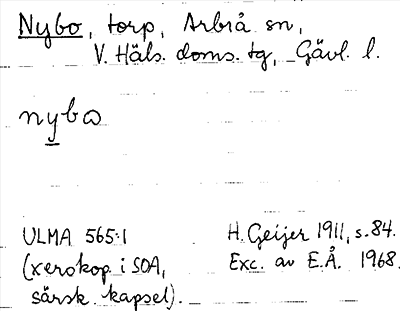 Nybo, torp, Arbrå sn,
V. Häls. doms. tg, Gävl. l.
nybω
ULMA 565:1
(xerokop. i SOA,
särsk. kapsel).
H. Geijer 1911, s. 84.
Exc. av E.Å. 1968.